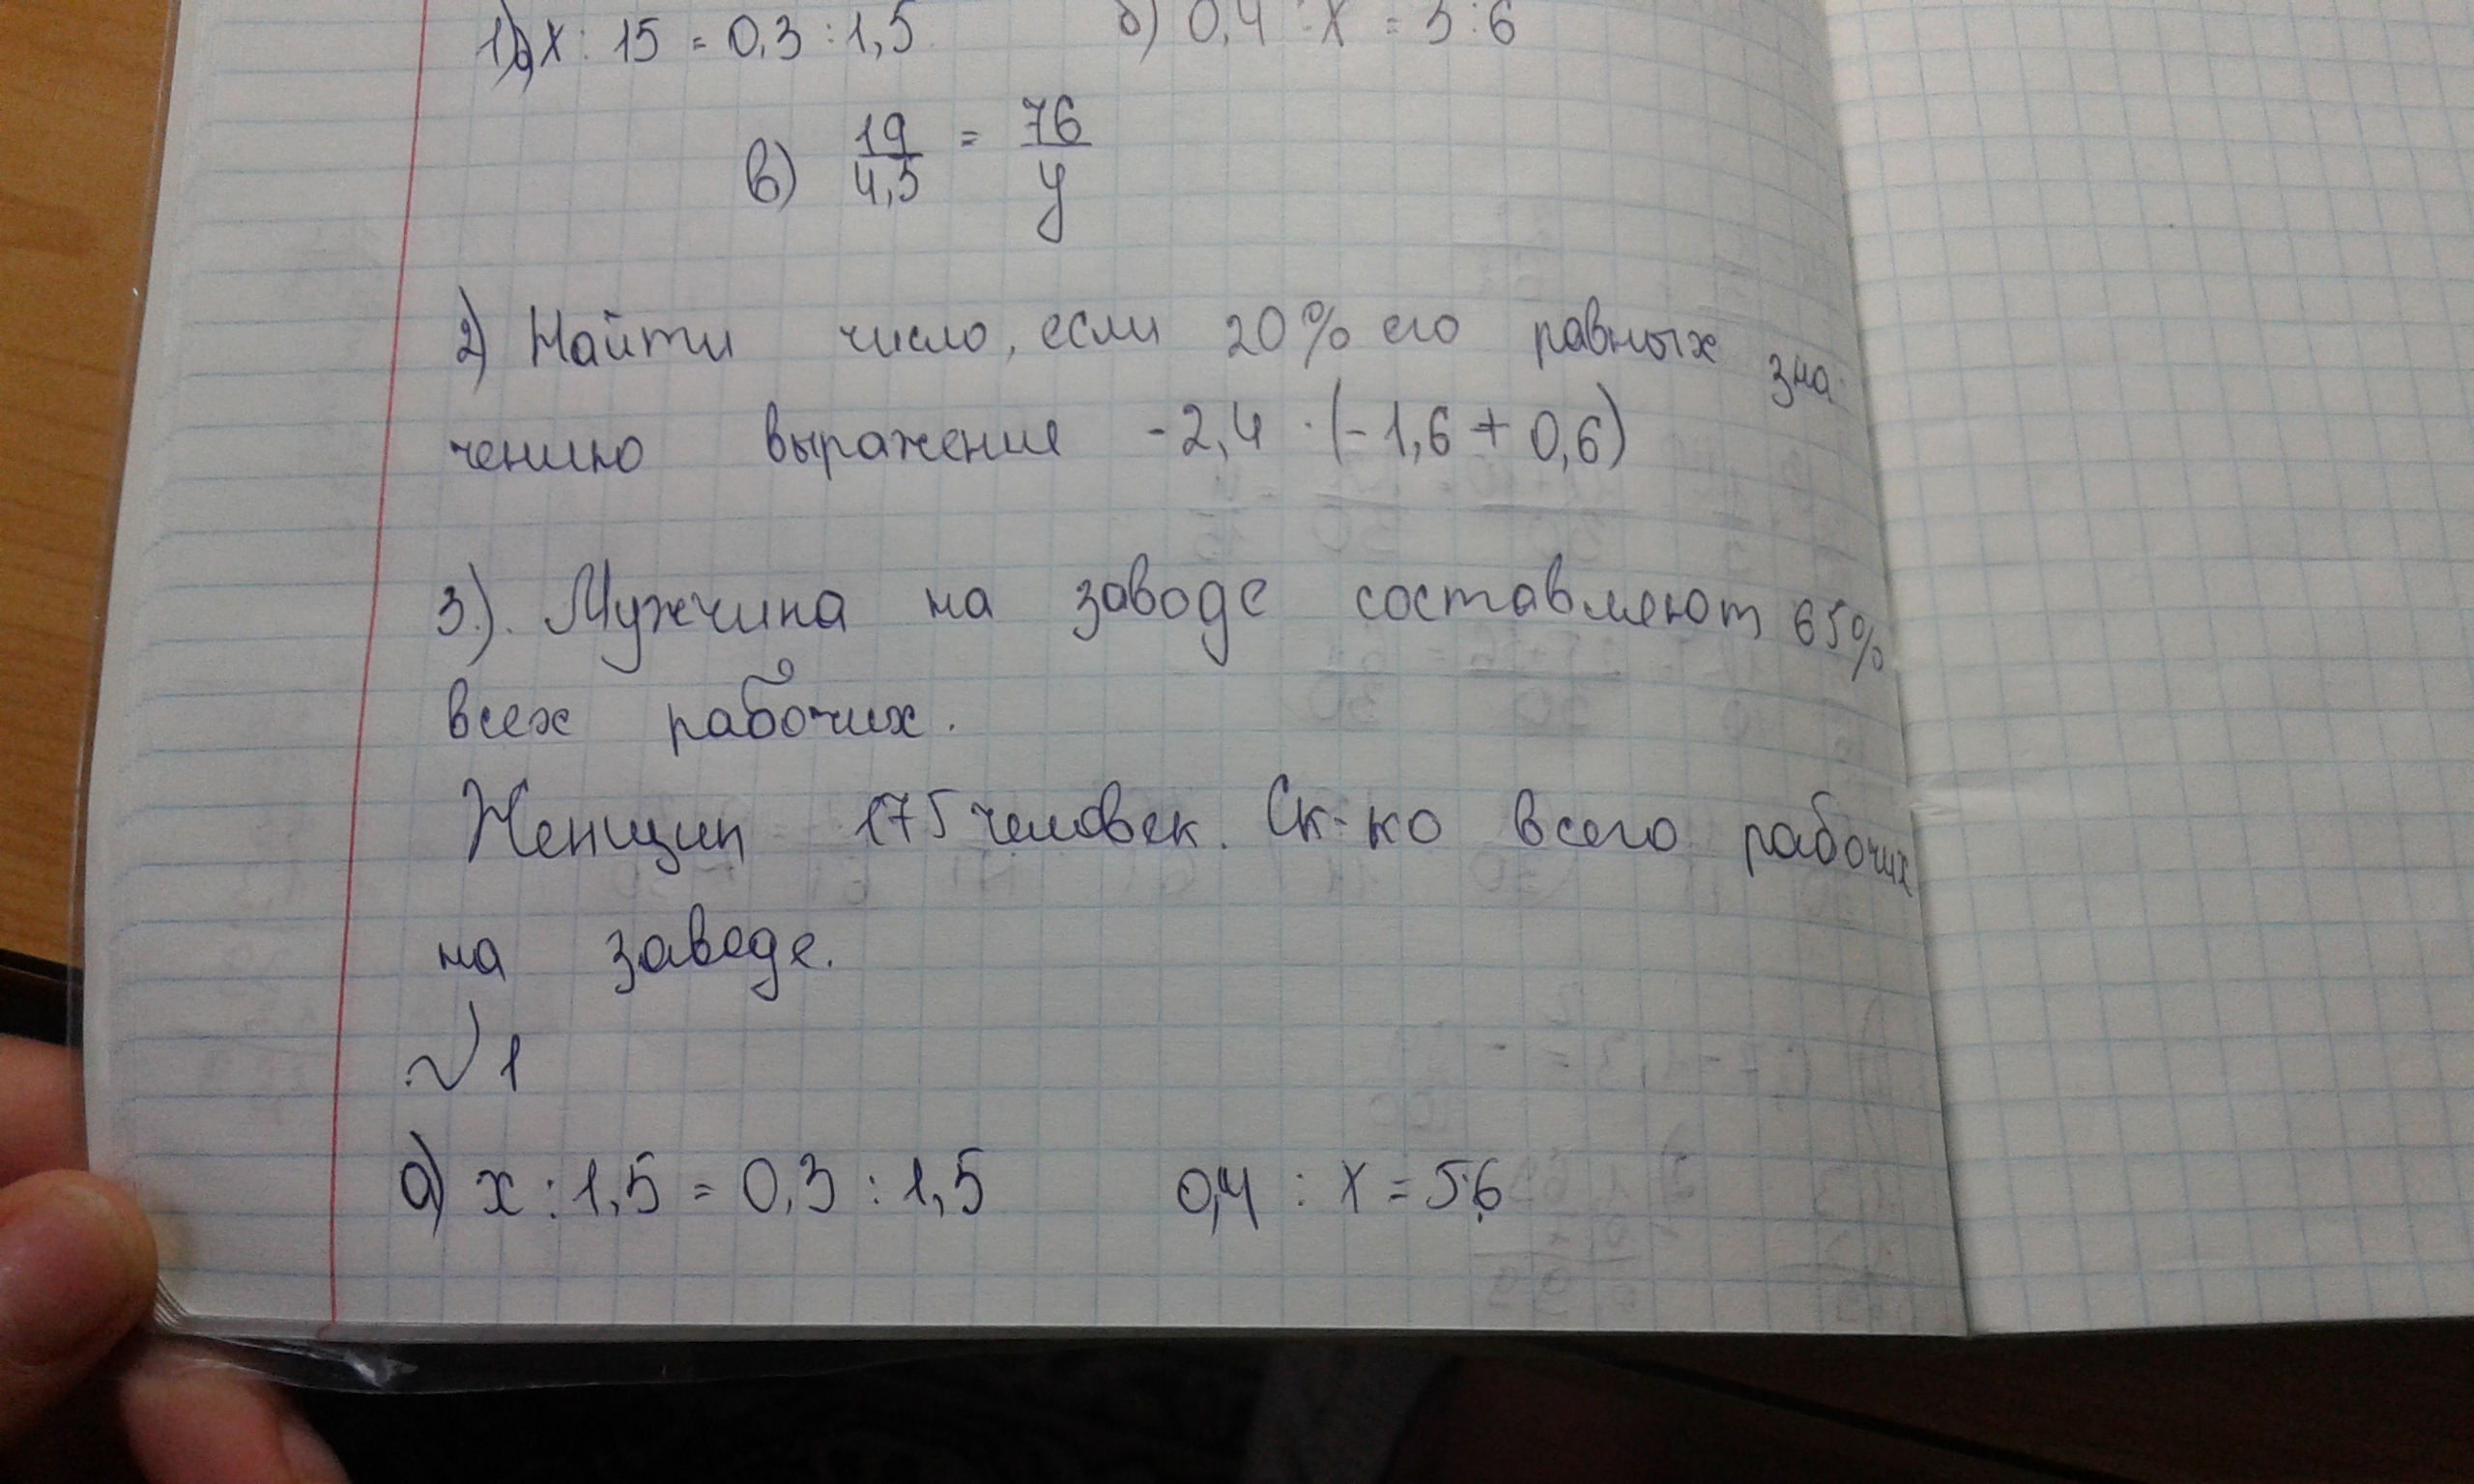 1) а) х : 15 = 0,3 : 1,5   б) 0,4 : х = 5 : 6
в) 19/4,5 = 76/у
2) Найти число, если 20% его равных зна-
чению выражение -2,4 · (-1,6 + 0,6)
3). Мужчина на заводе составлеют 65%
всех рабочих.
Женщин 175 человек. Ск-ко всего рабочих
на заводе.
№ 1
а) х : 1,5 = 0,3 : 1,5   0,4 : х = 5:6